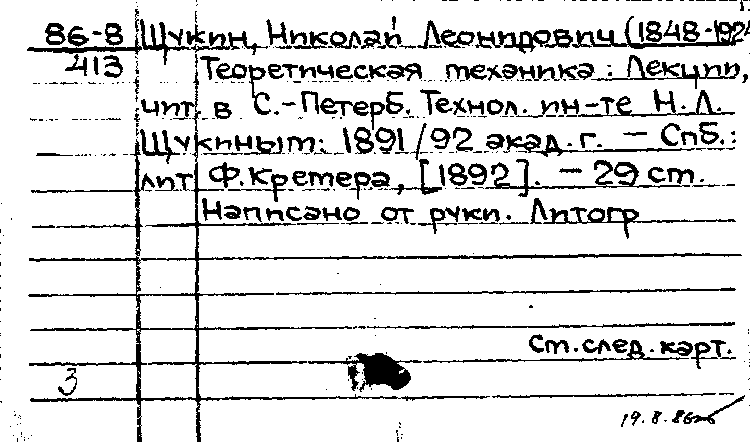 86-8 Щукин, Николай Леонидович (1848-1924
413 Теоретическая механика: Лекции,
чит. в С.-Петерб. Технол. ин-те Н.Л.
Щукиным: 1891/92 акад. г. — Спб.:
лит Ф. Кретера, [1892]. — 29 см.
Написано от руки. Литогр
См. след. карт.
3
19.8.86